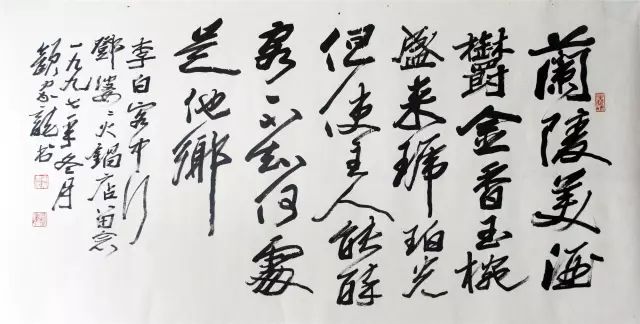 蘭陵美酒
欝金香玉椀
盛来琥珀光
但使主人能醉
客不知何處
是他鄉
李白客中行
鄧婆〻火鍋店留念
一九九七年冬月
顏家龍书